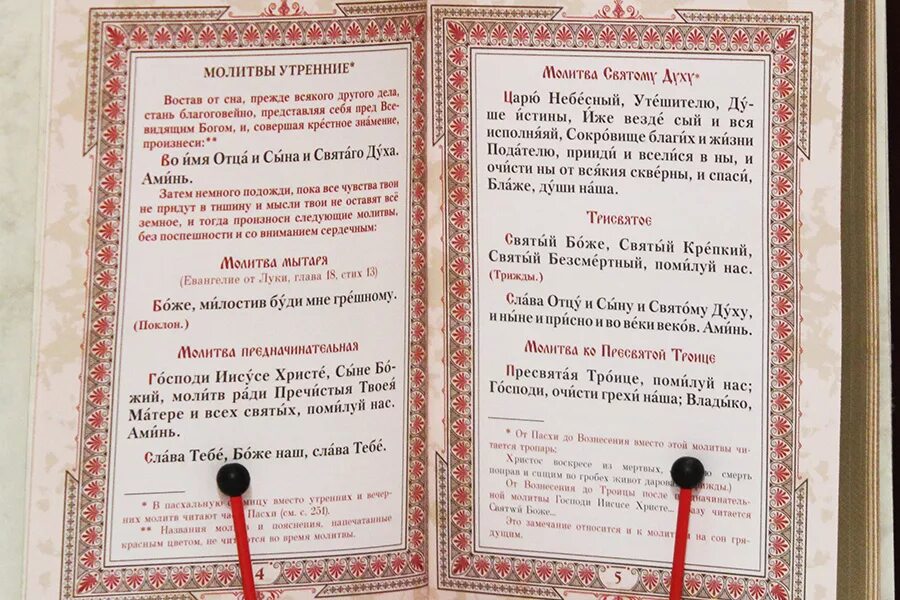 МОЛИТВЫ УТРЕННИЕ*
Востав от сна, прежде всякого другого дела,
стань благоговейно, представляя себя пред Все-
видящим Богом, и, совершая кре́стное зна́мение,
произнеси:**
Во и́мя Отца́ и Сы́на и Свята́го Ду́ха.
Ами́нь.
Затем немного подожди, пока все чувства твои
не придут в тишину и мысли твои не оставят всё
земное, и тогда произноси следующие молитвы,
без поспешности и со вниманием сердечным:
Молитва мытаря
(Евангелие от Луки, глава 18, стих 13)
Бо́же, ми́лостив бу́ди мне гре́шному.
(Поклон.)
Молитва предначинательная
Го́споди Иису́се Христе́, Сы́не Бо́-
жий, моли́тв ра́ди Пречи́стыя Твоея́
Ма́тере и всех святы́х, поми́луй нас.
Ами́нь.
Сла́ва Тебе́, Бо́же наш, сла́ва Тебе́.
* В пасхальную
вместо утренних и вечер-
них молитв читают
Пасхи (см. с. 251).
** Названия
и пояснения, напечатанные
красным цветом, не
во время молитвы.
4
Молитва Святому Духу*
Царю́ Небе́сный, Уте́шителю, Ду́-
ше и́стины, И́же везде́ сый и вся
исполня́яй, Сокро́вище благи́х и жи́зни
Пода́телю, прииди́ и всели́ся в ны, и
очи́сти ны от вся́кия скве́рны, и спаси́,
Бла́же, ду́ши на́ша.
Трисвятое
Святы́й Бо́же, Святы́й Кре́пкий,
Святы́й Безсме́ртный, поми́луй нас.
(Трижды.)
Сла́ва Отцу́ и Сы́ну и Свято́му Ду́ху,
и ны́не и при́сно и во ве́ки веко́в. Ами́нь.
Молитва ко Пресвятой Троице
Пресвята́я Тро́ице, поми́луй нас;
Го́споди, очи́сти грехи́ на́ша; Влады́ко,
* От Пасхи до Вознесения вместо этой молитвы чи-
тается тропарь:
Христос воскресе из мертвых,
смертию смерть
поправ и сущим во гробех живот
От Вознесения до Троицы после
ной молитвы Господи Иисусе Христе...
читается
Святый Боже...
Это замечание относится и к
на сон гря-
дущим.
5